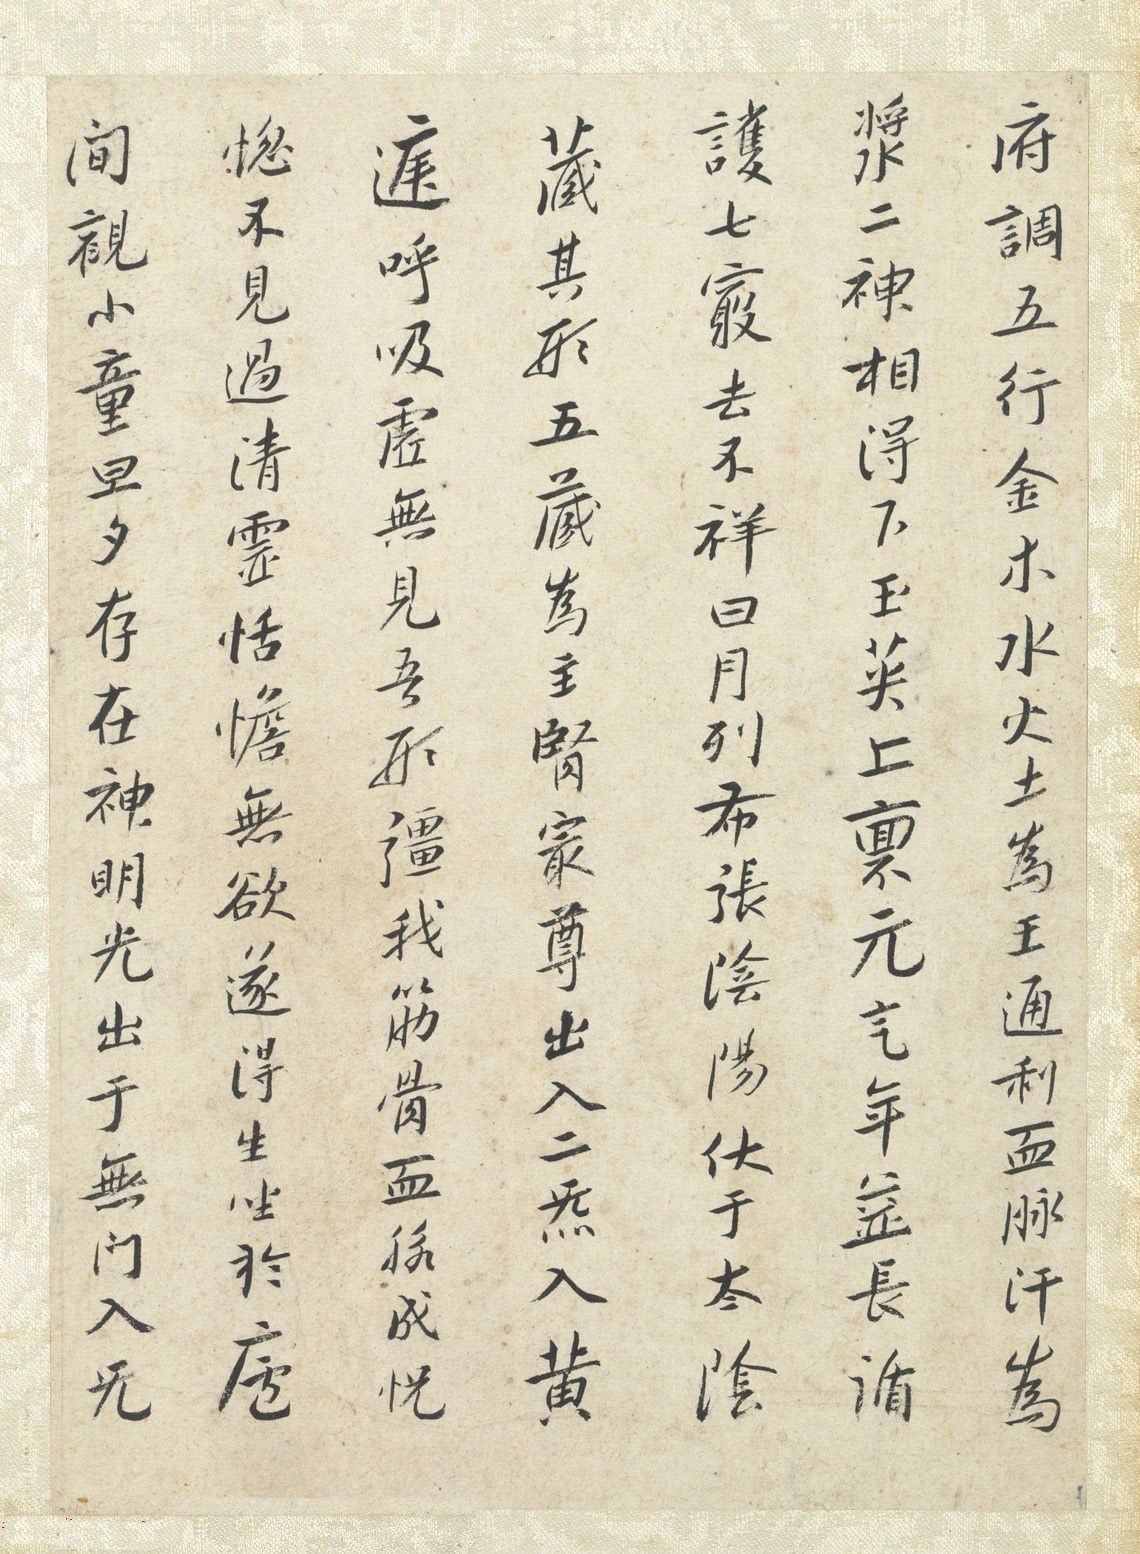 府調五行金木水火土為王通利血脉汗為
漿二神相得下玉英上禀元气年益長循
護七竅去不祥日月列布張陰陽伏于太陰
藏其形五藏為主腎最尊出入二炁入黄
庭呼吸虚無見吾形彊我筋骨血脉成恍
惚不見過清靈恬憺無欲遂得生坐於廬
間観小童旦夕存在神明光出于無門入无